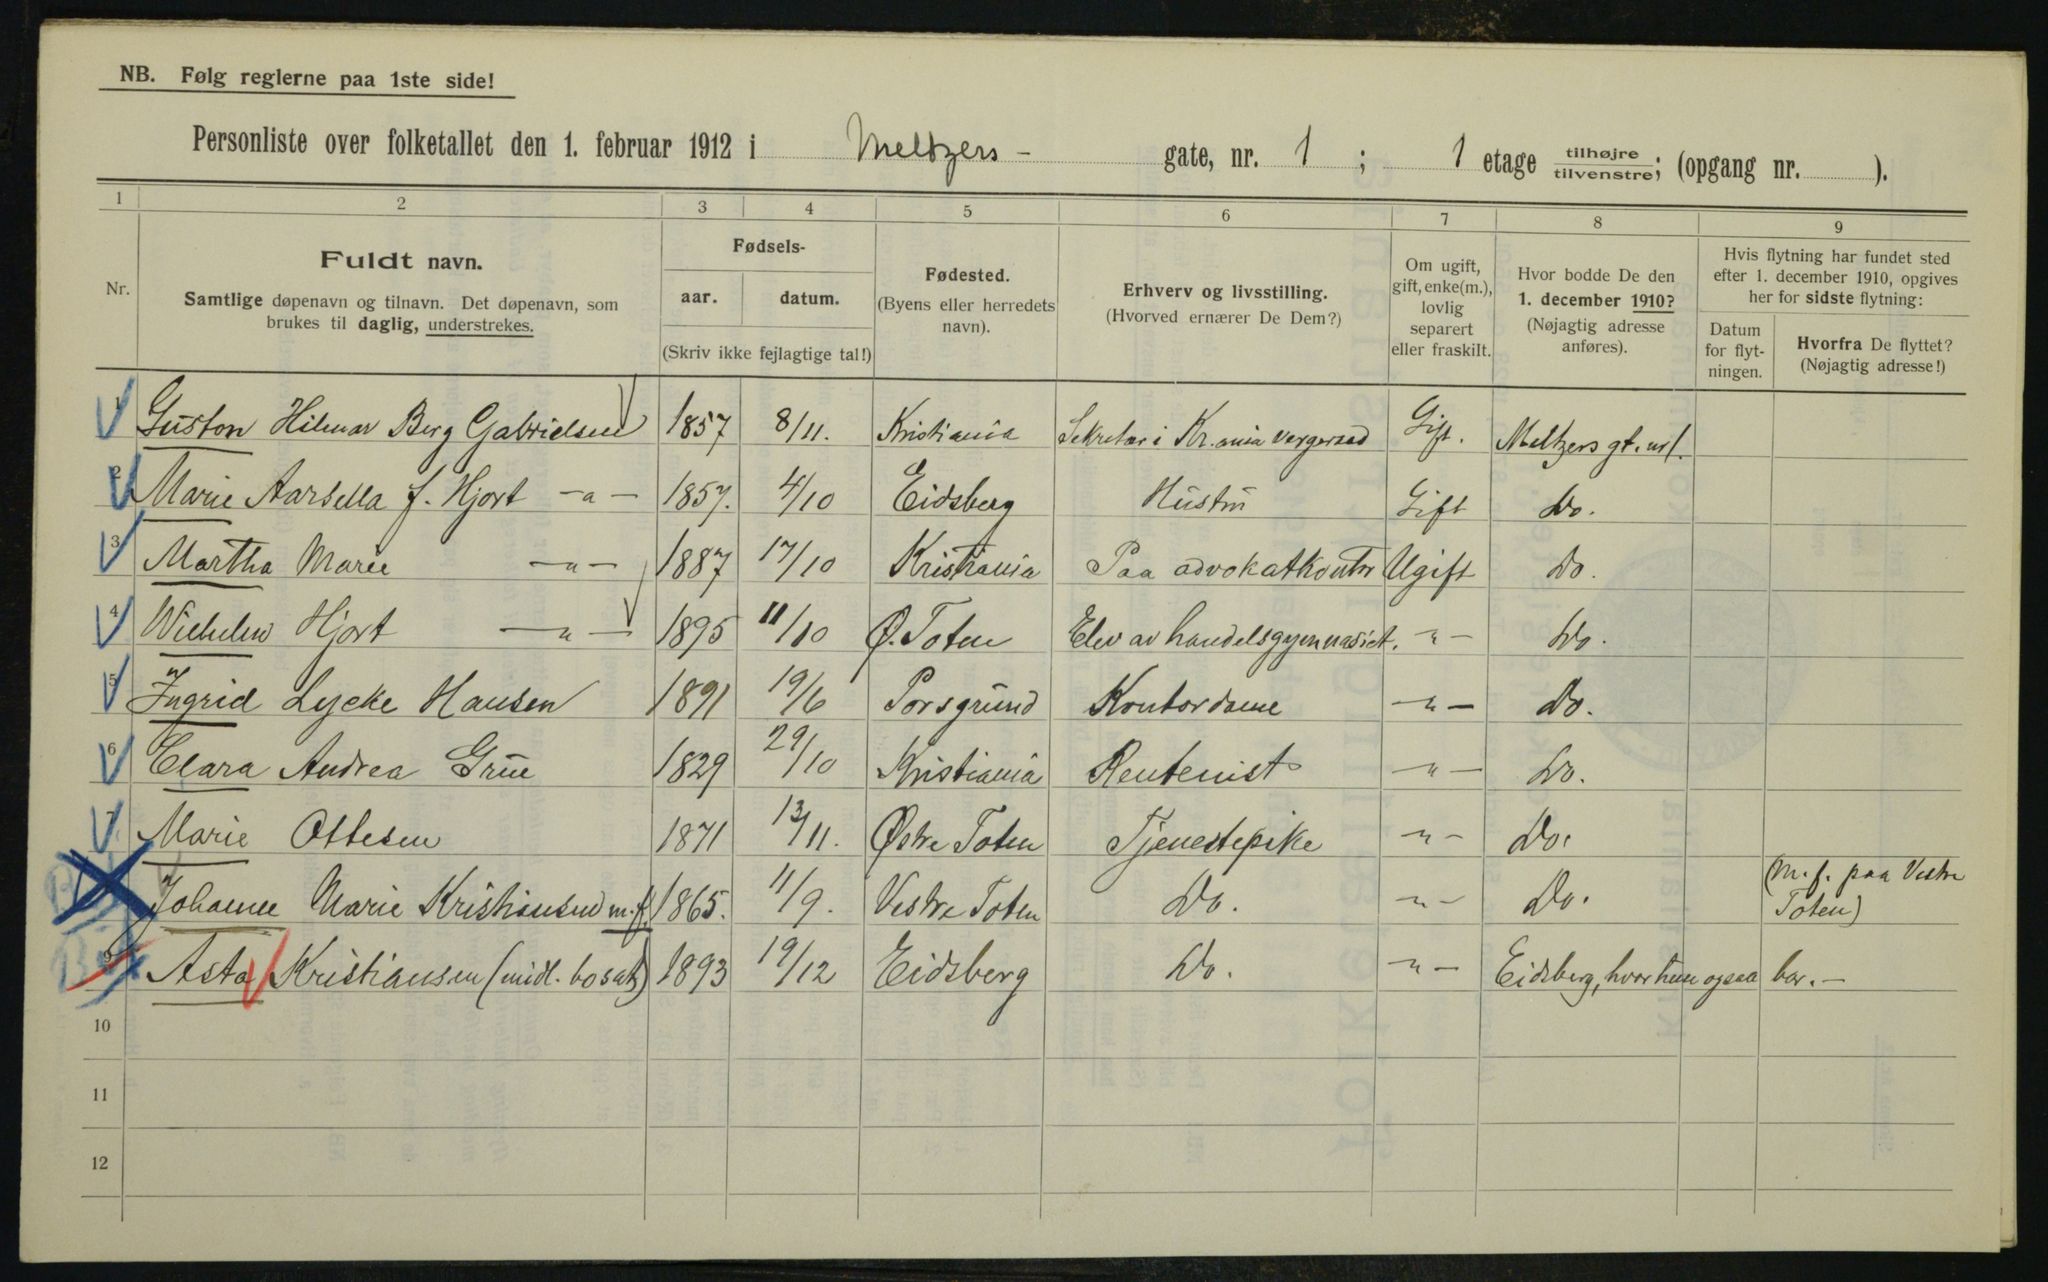 NB. Følg reglerne paa 1ste side!
Personliste over folketallet den 1. februar 1912 i Meltzers - gate, nr. 1 ; 1 etage tilhøjre tilvenstre; (opgang nr. ).
1 2 3 4 5 6 7 8 9
Nr.
Fuldt navn.
Samtlige døpenavn og tilnavn. Det døpenavn, som
brukes til daglig, understrekes.
Fødsels-
aar. datum.
(Skriv ikke fejlagtige tal!)
Fødested.
(Byens eller herredets
navn).
Erhverv og livsstilling.
(Hvorved ernærer De Dem?)
Om ugift,
gift, enke(m.),
lovlig
separert
eller fraskilt.
Hvor bodde De den
1. december 1910?
(Nøjagtig adresse
anføres).
Hvis flytning har fundet sted
efter 1. december 1910, opgives
her for sidste flytning:
Datum
for flyt-
ningen.
Hvorfra De flyttet?
(Nøjagtig adresse!)
1 Hilmar Berg Gabrielsen 1857 8/11. Kristiania Sekretær i Kr.ania Gift. Meltzers gt. nr 1.
2 Marie f. Hjort -"- 1857. 4/10 Eidsberg Hustru Gift Do.
3 Martha Marie -"- 1887 17/10 Kristiania Paa advokatkontor Ugift Do.
4 Wilhelm Hjort -"- 1895 11/10 Ø. Toten Elev av handelsgymnasiet. -"- Do.
5 Ingrid Lycke Hansen 1891 19/6 Porsgrund Kontordame -"- Do.
6 Clara Andrea Grue 1829 29/10 Kristiania Rentenist -"- Do.
7 Marie Ottesen 1871 13/11. Østre Toten Tjenestepike -"- Do.
Johanne Marie Kristiansen m.f. 1865. 11/9. Vestre Toten Do. -"- Do. (m. f. paa Vestre
Toten)
9 Asta Kristiansen (midl. bosat) 1893 19/12 Eidsberg Do. -"- Eidsberg, hvor hun ogsaa bor. -
10
11
12